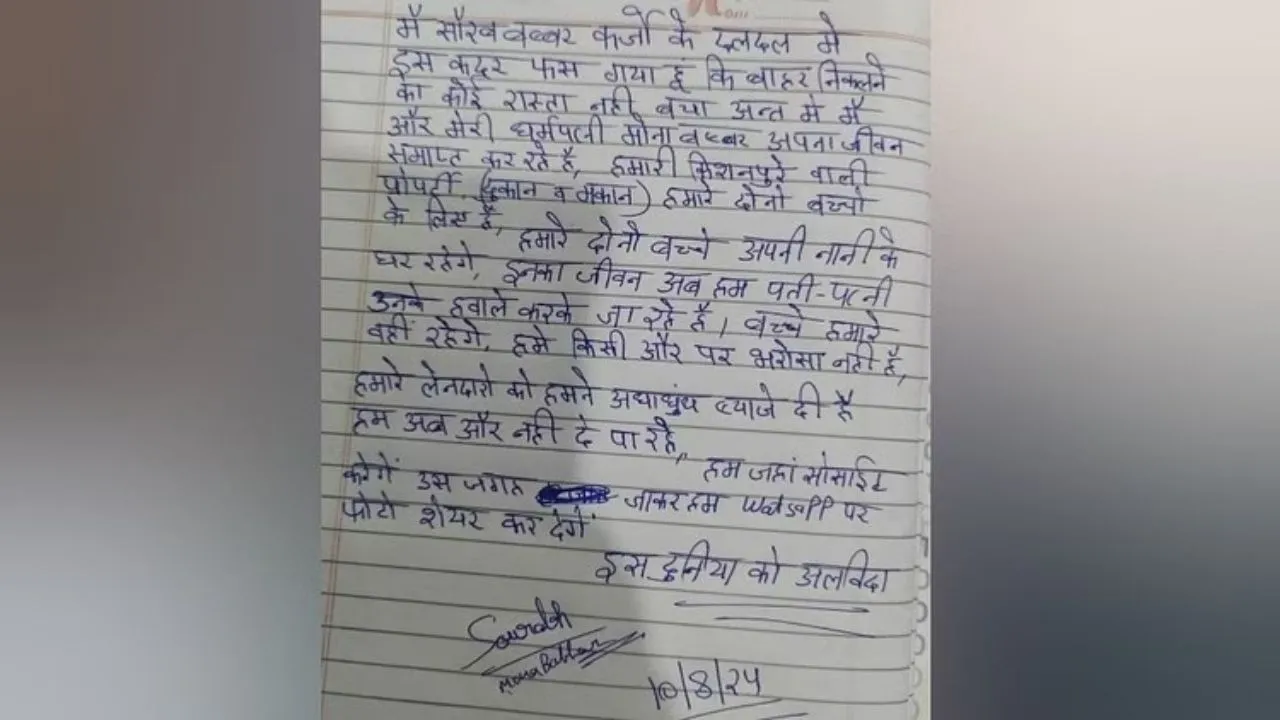 मै सौरव बब्बर कर्जो के दलदल मे
इस कदर फस गया हूं कि बाहर निकलने
का कोई रास्ता नही बचा अन्त मे मै
और मेरी धर्मपत्नी मोना बब्बर अपना जीवन
समाप्त कर रहे है, हमारी किशनपुरे वाली
प्रोपर्टी (दुकान व मकान) हमारे दोनो बच्चो
के लिए है, हमारे दोनो बच्चे अपनी नानी के
घर रहेगे, इनका जीवन अब हम पती-पत्नी
उनके हवाले करके जा रहे है। बच्चे हमारे
वहीं रहेगे, हमे किसी और पर भरोसा नही है,
हमारे लेनदारो को हमने अंधाधुंध ब्याजे दी है
हम अब और नही दे पा रहे,
हम जहां सोसाईट
करेगें उस जगह जाकर हम Watsapp पर
फोटो शेयर कर देगें
इस दुनिया को अलविदा
Sourabh
Mona Babbar
10/8/24